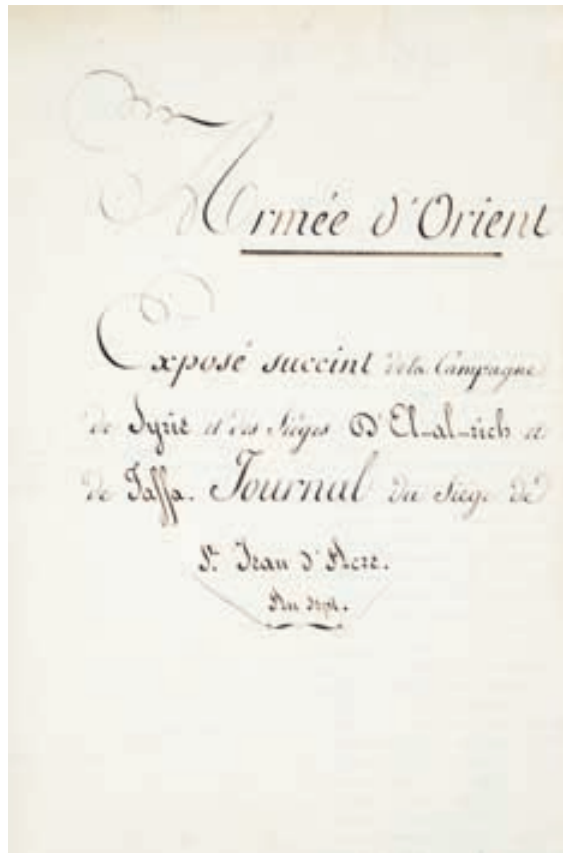 Armée d'Orient
Exposé succint de la Campagne
de Syrie et des Sièges D'El-al-rich et
de Jaffa. Journal du Siège de
St. Jean d'Acre.
An sept.